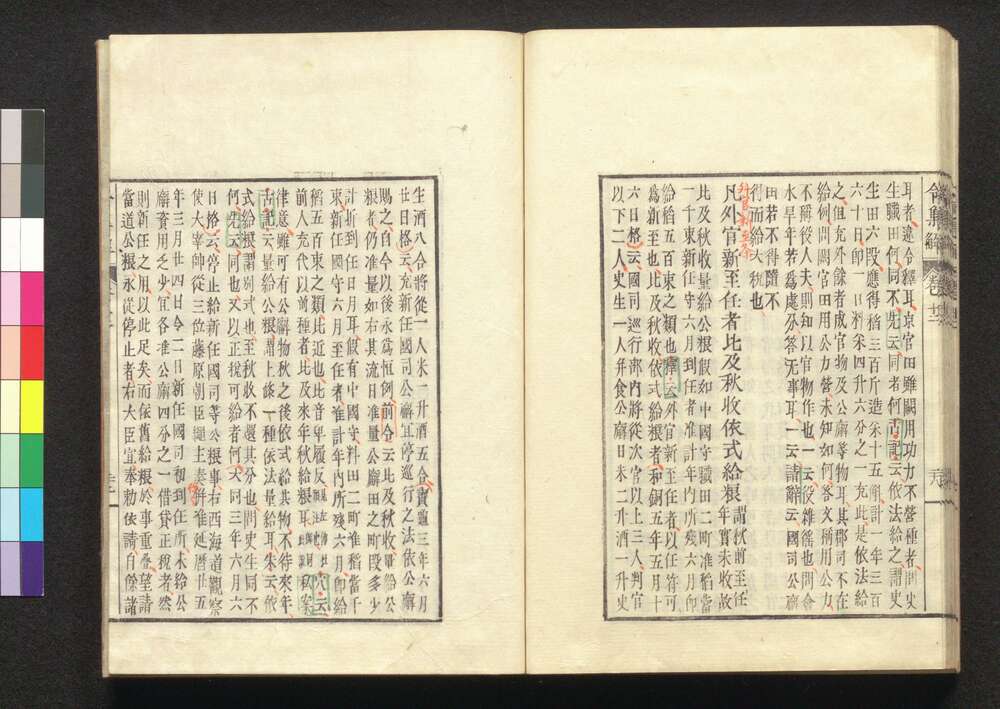 令集解 卷十二
耳者違令釋耳京官田雖闕用功力不營種者問史
生職田何同不先云同者何古記云依法給之謂史
生田六段應得稻三百斤造米十五斛計一年三百
六十日卽一日料米四升六分之一充此是依法給
之但充外餘者成官物及公廨等物耳其郡司不在
給例問闕官田用公力營未知如何答文稱用公力
不稱役人夫則知以官物作也一云役雜徭也問令
水旱年若爲處分答无事耳一云請辭云國司公廨
田若不得隨不
得而給大稅也
凡外官新至任者比及秋收依式給粮謂秋前至任年實未收故
比及秋收量給公粮假如中國守職田二町准稻當
一千束新任守六月到任者准計年內所殘六月卽
給稻五百束之類也釋云外官新至任者以任符可
爲新至也比及秋收依式給粮者和銅五年五月十
六日格云國司巡行部內將從次官以上三人判官
以下二人史生一人幷食公廨日米二升酒一升史
生酒八合將從一人米一升酒五合靈龜三年六月
廿日格云充新任國司公廨宜停巡行之法依公廨
賜之自今以後永爲恒例前令云比及秋收量給公
粮者仍准量如右其流日准量公廨田之町段多少
計折到任日月耳假有中國守料田二町准稻當千
束新任國守六月至任者准計年內所殘六月卽給
稻五百束之類比種近也比音卑履反
前人充代以前年者比及來年年秋給粮耳
律意雖可有公廨物秋之後依式給其物不待來年
古記云量給公粮謂上條一種依法量給耳朱云依
式給粮謂別式也至秋收不還其分也問史生同不
何先云同也又以正稅可給者何大同三年六月六
日格云停止給新任國司等公粮事右西海道觀察
使大宰帥從三位藤原朝臣繩主奏稱准延曆廿五
年三月廿四日令二日新任國司初到任所未給公
廨資用乏少宜各准公廨四分之一借貸正稅者然
則新任之用以此足矣而依舊給粮於事重疊望請
當道公粮永從停止者右大臣宣奉勅依請自餘諸